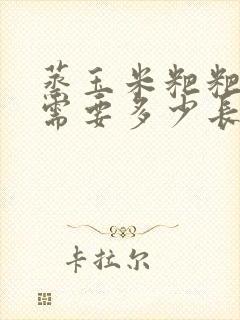 蒸玉米粑粑
需要多少长
卡拉尔